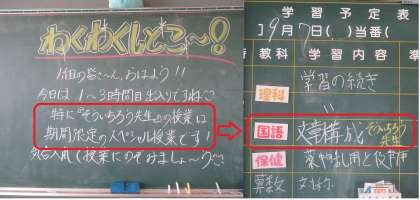 わくわくしとこ〜!
1組の皆さ〜ん、おはよう!!
今日は1〜3時間目出入りですね♡
特に『そういちろう先生』の授業は
期間限定のスペシャル授業です!
気合入れて授業にのぞみましょ〜う♡
学習予定表
9月7日( )当番(
教科 学習内容 準
理科 学習の続き
〃
国語 文章構成 そういちろう先生
保健
算数